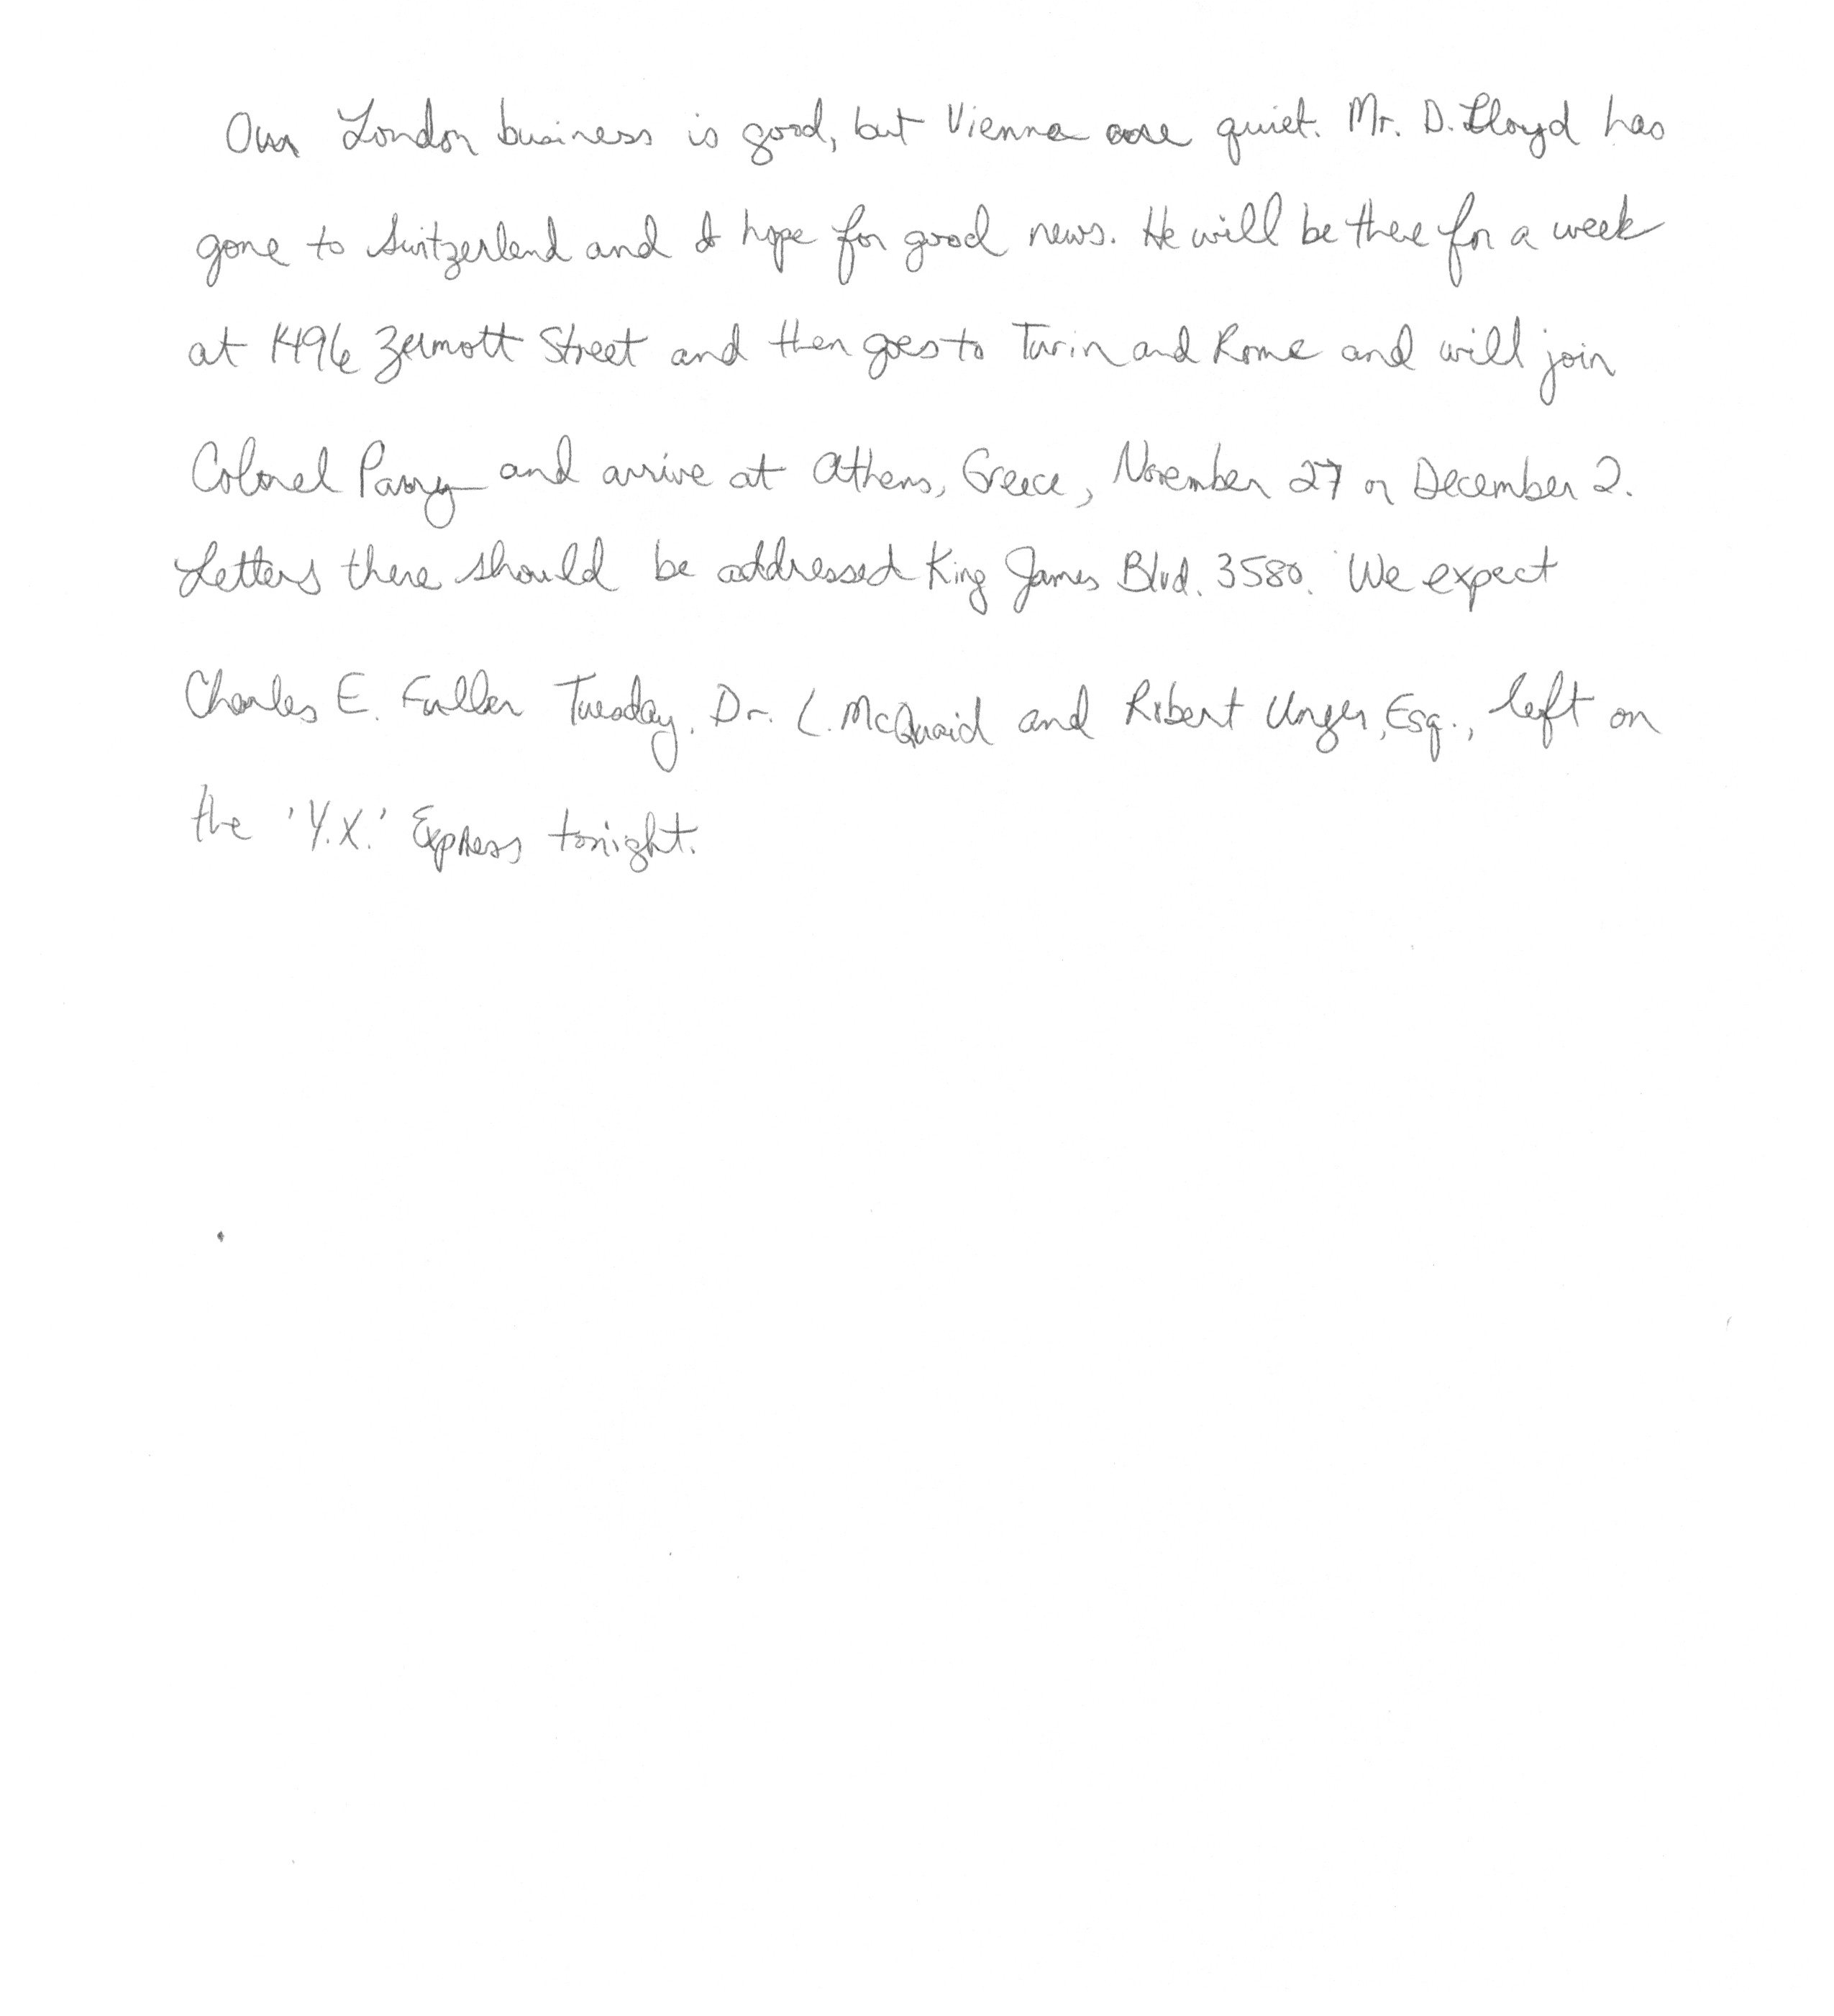 Our London business is good, but Vienna are quiet. Mr. D. Lloyd has
gone to Switzerland and I hope for good news. He will be there for a week
at 1496 Zermott Street and then goes to Turin and Rome and will join
Colonel Parry and arrive at Athens, Greece, November 27 or December 2.
Letters there should be addressed King James Blvd. 3580. We expect
Charles E. Fuller Tuesday. Dr. L. McQuaid and Robert Unger, Esq., left on
the 'Y.X.' Express tonight.